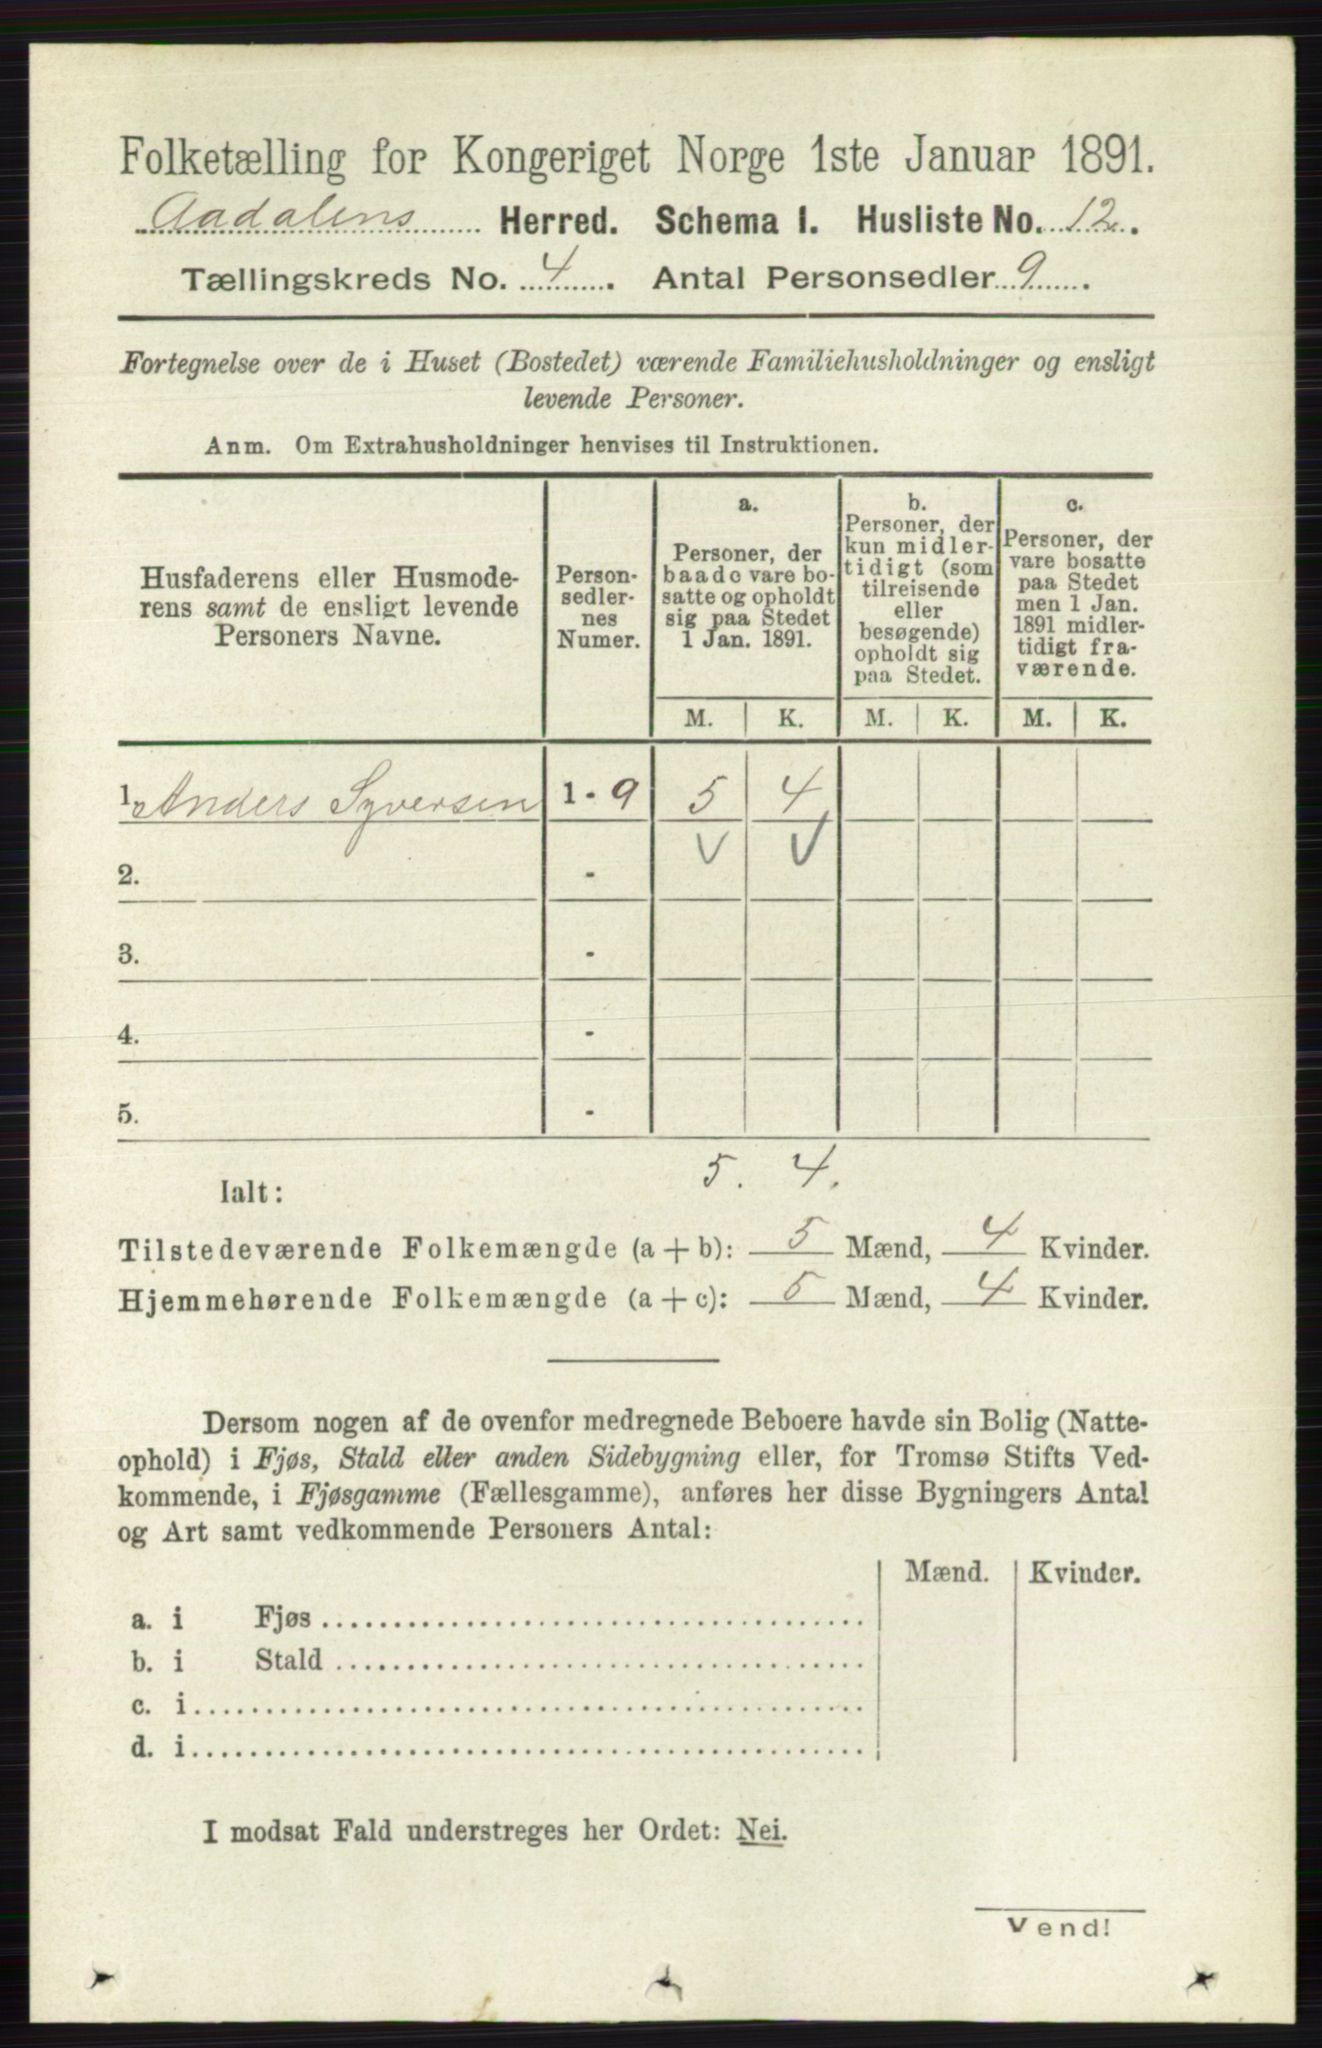 Folketælling for Kongeriget Norge 1ste Januar 1891.
Aadalens Herred. Schema 1. Husliste No. 12.
Tællingskreds No. 4. Antal Personsedler 9.
Fortegnelse over de i Huset (Bostedet) værende Familiehusholdninger og ensligt
levende Personer.
Anm. Om Extrahusholdninger henvises til Instruktionen.
Husfaderens eller Husmode-
rens samt de ensligt levende
Personers Navne.
Person-
sedler-
nes
Numer.
a.
Personer, der
baade vare bo-
satte og opholdt
sig paa Stedet
1 Jan. 1891.
b.
Personer, der
kun midler-
tidigt (som
tilreisende
eller
besøgende)
opholdt sig
paa Stedet.
c.
Personer, der
vare bosatte
paa Stedet
men 1 Jan.
1891 midler-
tidigt fra-
værende.
M. K. M. K. M. K.
1. Anders Syversen 1 - 9 5 4
V V
2. -
3. -
4. -
5. -
5. 4.
Ialt:
Tilstedeværende Folkemængde (a + b): 5 Mænd, 4 Kvinder.
Hjemmehørende Folkemængde (a + c): 5 Mænd, 4 Kvinder.
Dersom nogen af de ovenfor medregnede Beboere havde sin Bolig (Natte-
ophold) i Fjøs, Stald eller anden Sidebygning eller, for Tromsø Stifts Ved-
kommende, i Fjøsgamme (Fællesgamme), anføres her disse Bygningers Antal
og Art samt vedkommende Personers Antal:
Mænd. Kvinder.
a. i Fjøs
b. i Stald
c. i
d. i
I modsat Fald understreges her Ordet: Nei.
Vend!